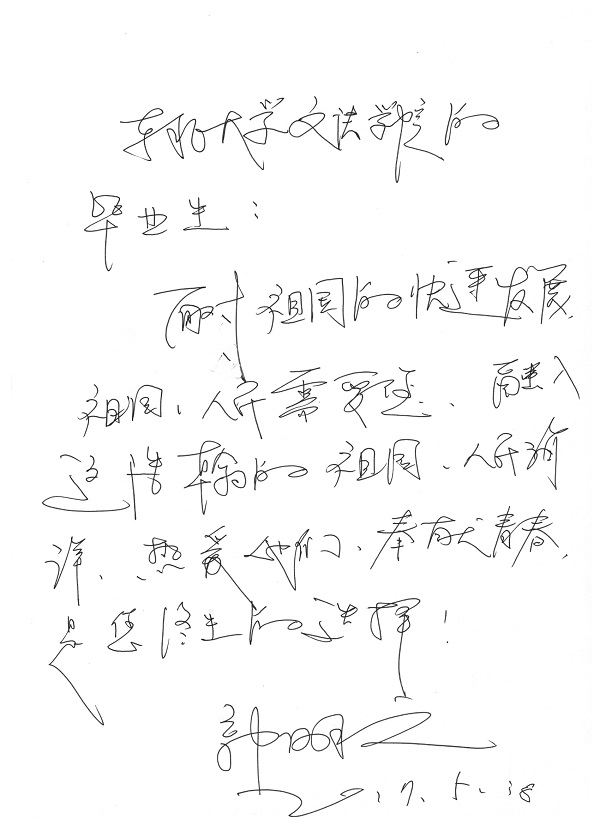 大学文法学院的
毕业生：
面对祖国的快速发展，
祖国、人民需要您、融入
这浩瀚的祖国、人民海
洋、热爱他们、奉献青春，
是您终生的选择！
郭明义
17.5.18